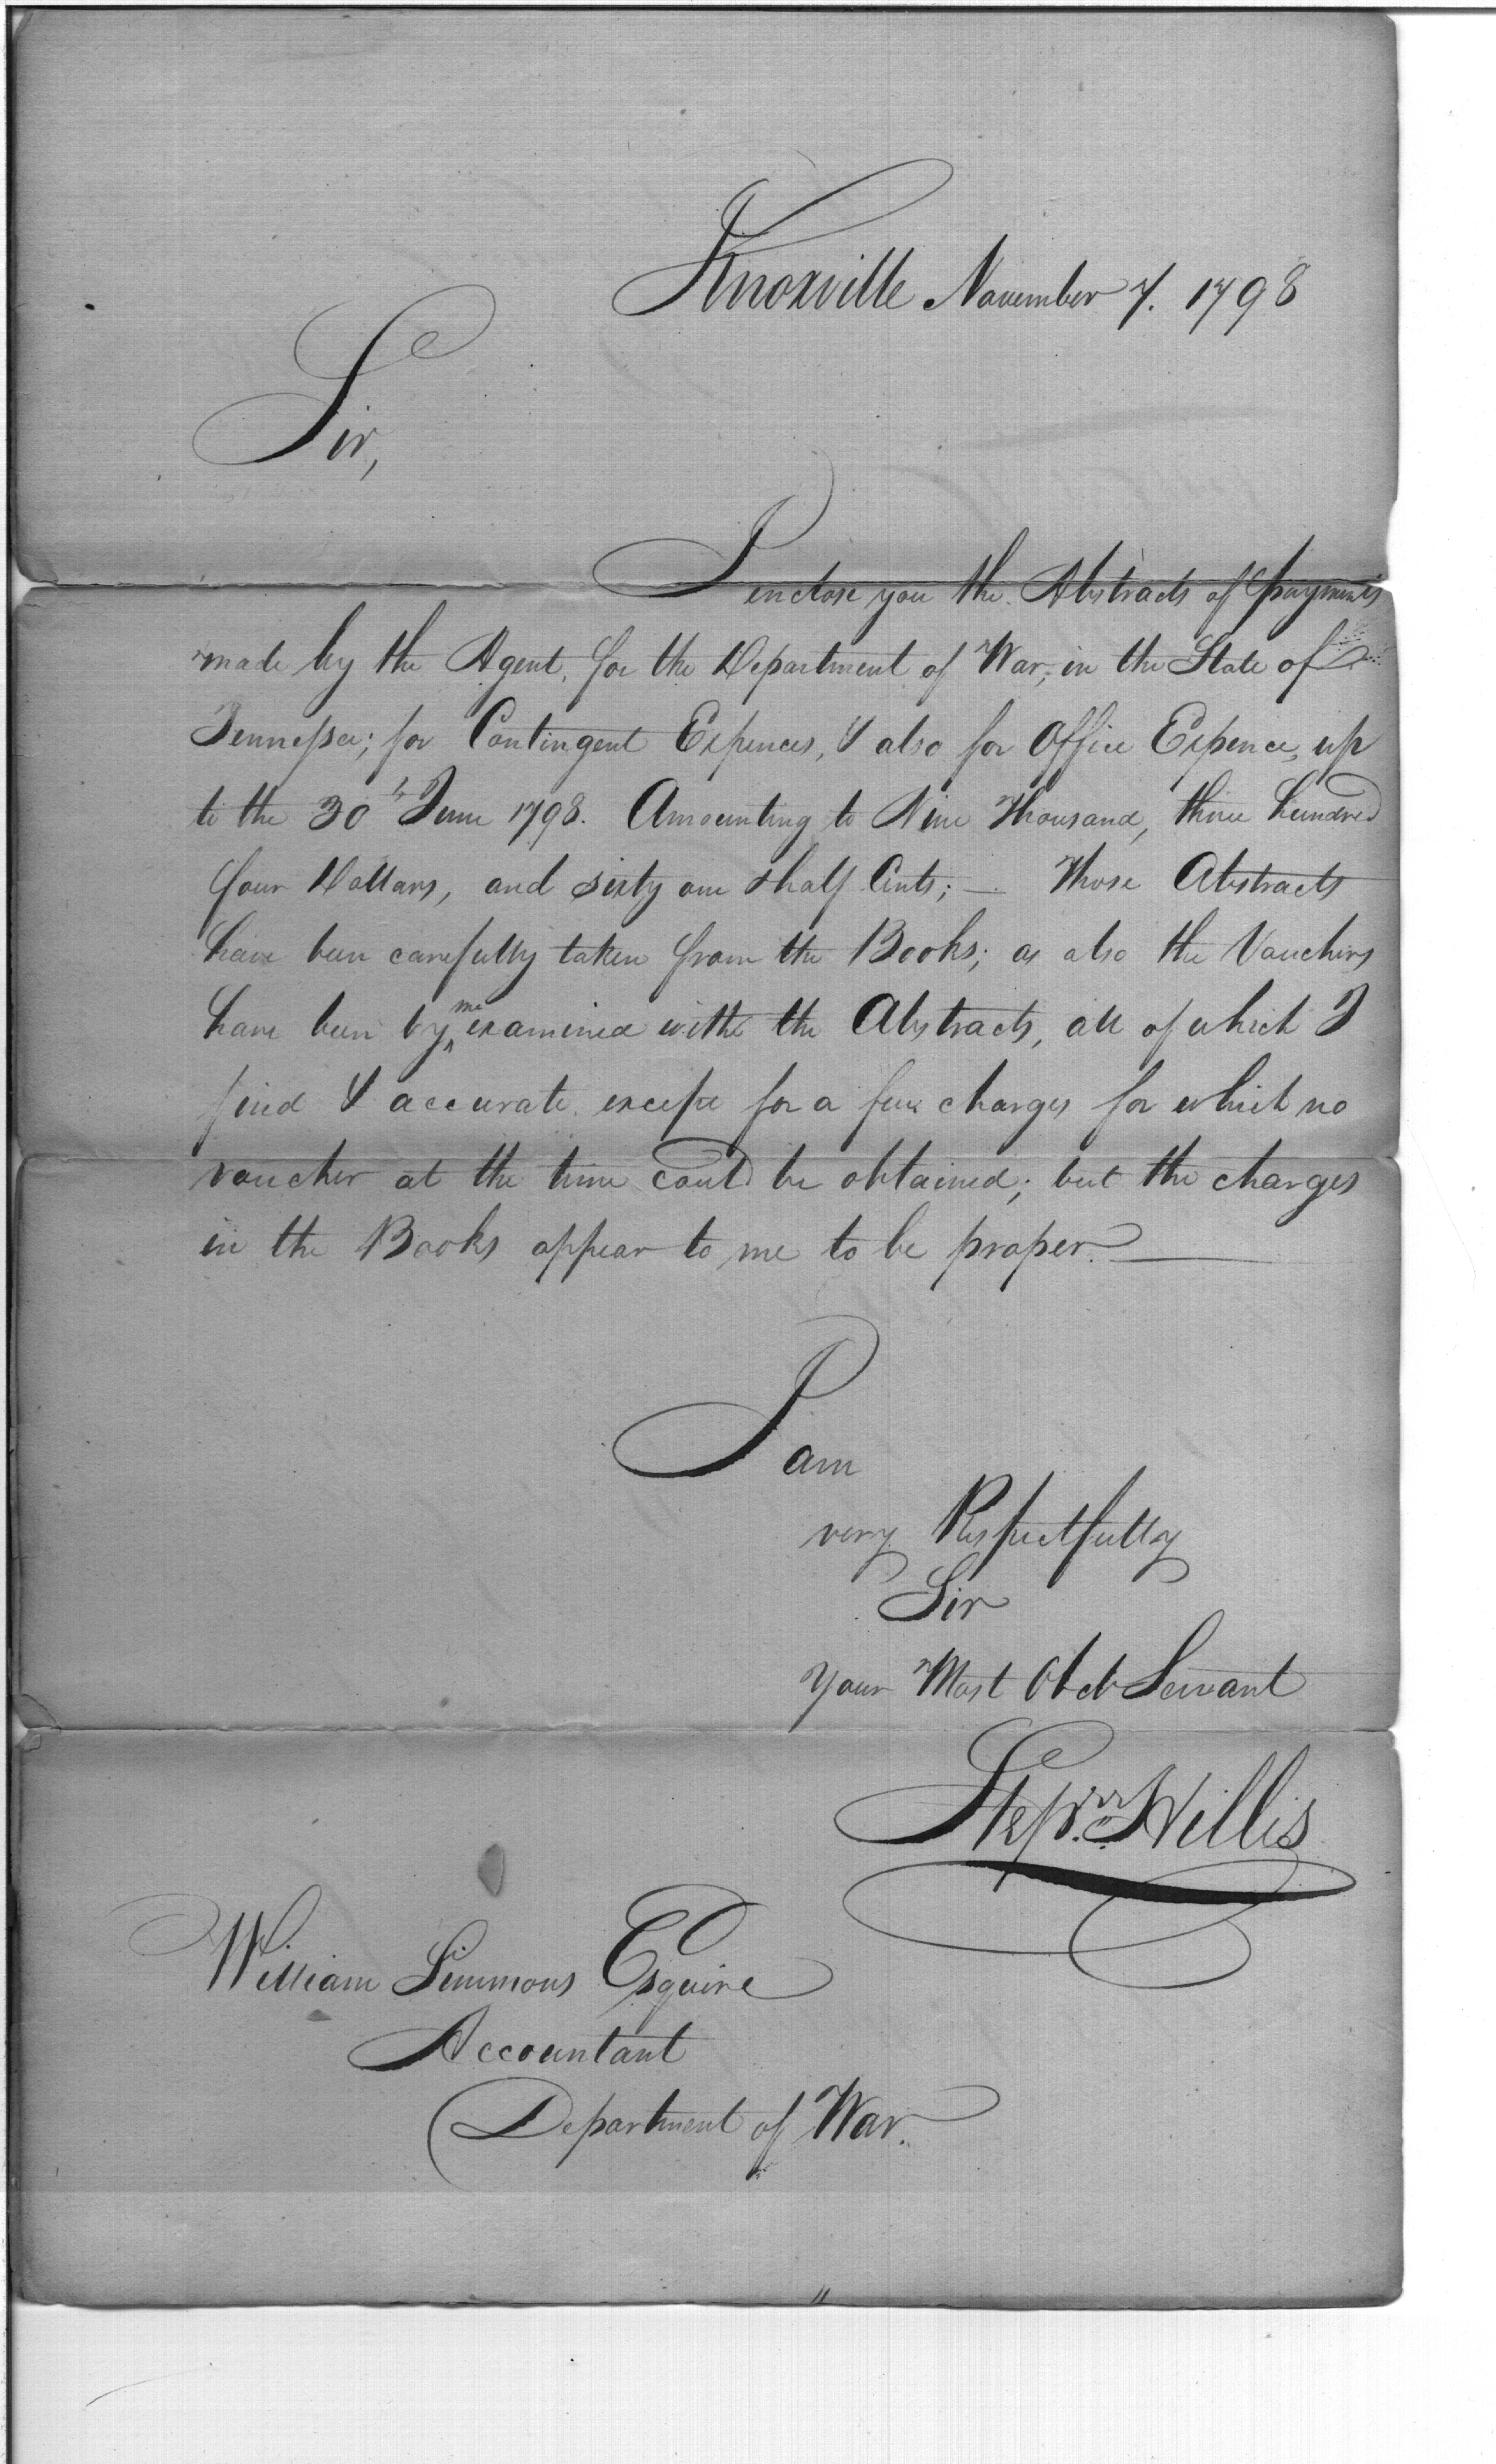 Knoxville November 7. 1798
Sir,
I enclose you the Abstracts of payments
made by the Agent, for the Department of War, in the State of
Tennessee; for Contingent Expences, & also for Office Expence, up
to the 30th June 1798. Amounting to Nine Thousand, three hundred
four Dollars, and sixty one & half Cents; — Those Abstracts
have been carefully taken from the Books; as also the Vouchers
have been by me examined with the Abstracts, all of which I
find & accurate except for a few charges for which no
voucher at the time could be obtained; but the charges
in the Books appear to me to be proper. —
I am
very Respectfully
Sir
Your Most Obdt Servant
Stepn. Hillis
William Simmons Esquire
Accountant
Department of War.